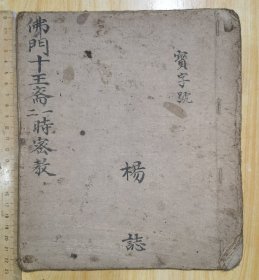 寳字號
楊誌
佛門十王斋一二時密教